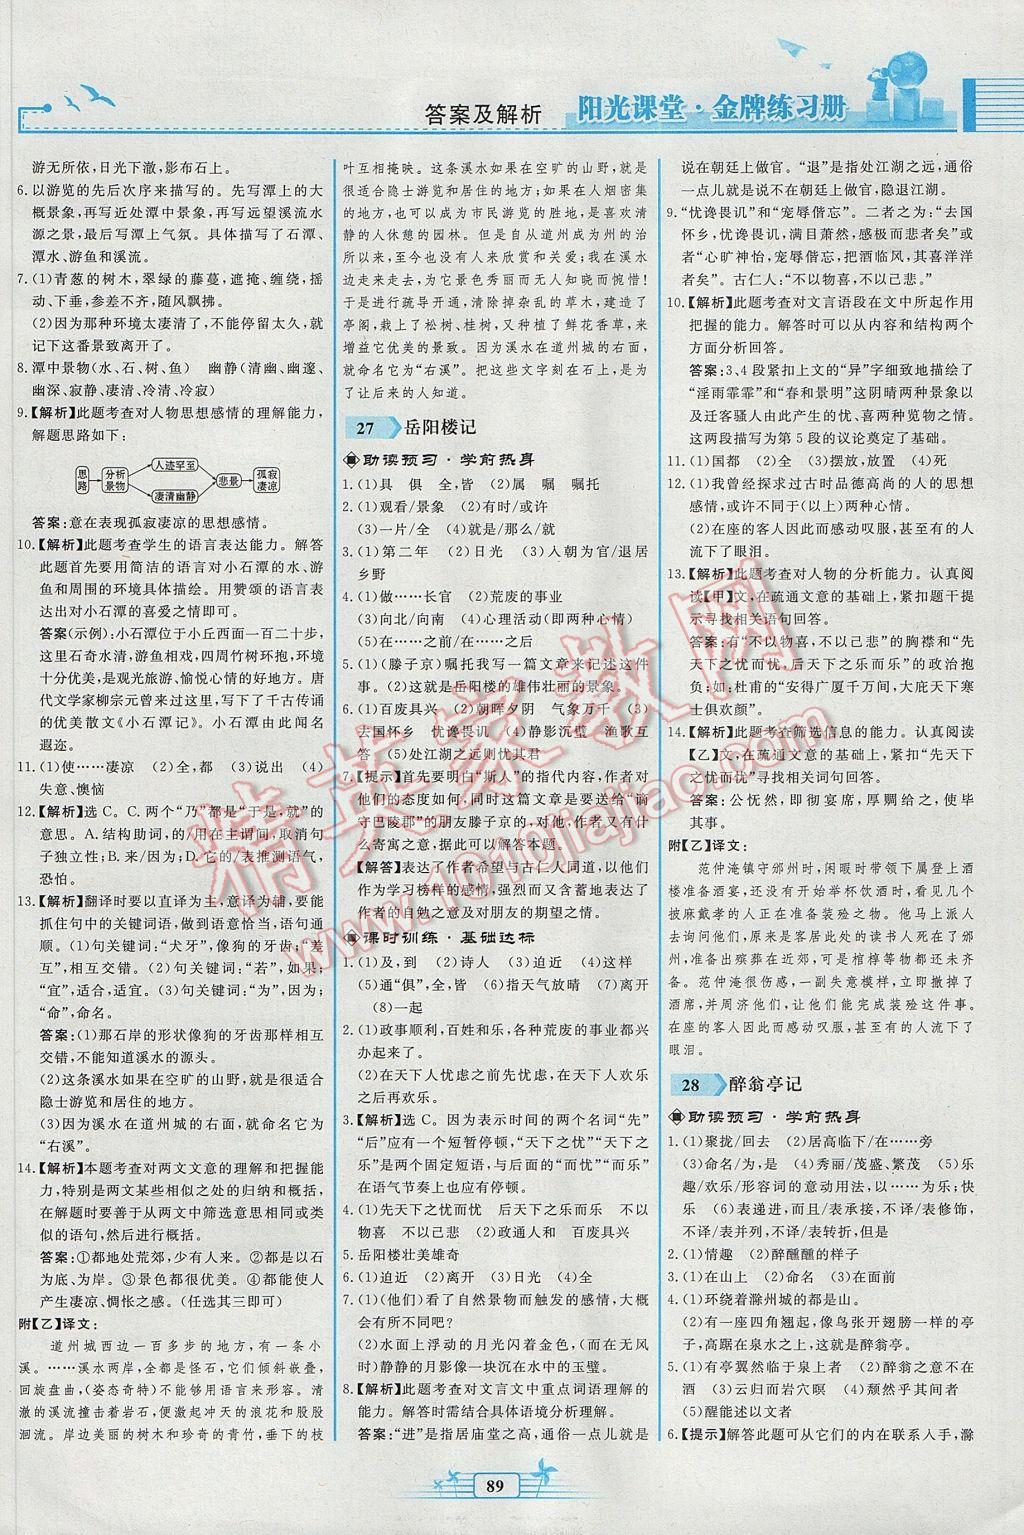 答案及解析
阳光课堂·金牌练习册
游无所依,日光下澈,影布石上。
6. 以游览的先后次序来描写的。先写潭上的大
概景象,再写近处潭中景象,再写远望溪流水
源之景,最后写潭上气氛。具体描写了石潭、
潭水、游鱼和溪流。
7. (1)青葱的树木,翠绿的藤蔓,遮掩,缠绕,摇
动、下垂,参差不齐,随风飘拂。
(2)因为那种环境太凄清了,不能停留太久,就
记下这番景致离开了。
8. 潭中景物(水、石、树、鱼) 幽静(清幽、幽邃、
幽深、寂静、凄清、冷清、冷寂)
9. 【解析】此题考查对人物思想感情的理解能力,
解题思路如下:
思路
分析景物
人迹罕至
凄清幽静
悲景
孤寂凄凉
答案:意在表现孤寂凄凉的思想感情。
10. 【解析】此题考查学生的语言表达能力。解答
此题首先要用简洁的语言对小石潭的水、游
鱼和周围的环境具体描绘。用赞颂的语言表
达出对小石潭的喜爱之情即可。
答案(示例):小石潭位于小丘西面一百二十步,
这里石奇水清,游鱼相戏,四周竹树环抱,环境
十分优美,是观光旅游、愉悦心情的好地方。唐
代文学家柳宗元曾来过这里,写下了千古传诵
的优美散文《小石潭记》。小石潭由此闻名
遐迩。
11. (1)使……凄凉 (2)全,都 (3)说出 (4)
失意、懊恼
12. 【解析】选 C。C. 两个“乃”都是“于是,就”的
意思。A. 结构助词,的/用在主谓间,取消句
子独立性;B. 来/因为;D. 它的/表推测语气,
恐怕。
13. 【解析】翻译时要以直译为主,意译为辅,要能
抓住句中的关键词语,做到语意恰当,语句通
顺。(1)句关键词:“犬牙”,像狗的牙齿;“差
互”,相互交错。(2)句关键词:“若”,如果;
“宜”,适合,适宜。(3)句关键词:“为”,因为;
“命”,命名。
答案:(1)那石岸的形状像狗的牙齿那样相互
交错,不能知道溪水的源头。
(2)这条溪水如果在空旷的山野,就是很适合
隐士游览和居住的地方。
(3)因为溪水在道州城的右面,就命名它为
“右溪”。
14. 【解析】本题考查对两文文意的理解和把握能
力,特别是对两文某些相似之处的归纳和概括,
在解题时要善于从两文中筛选意思相同或类
似的语句,然后进行概括。
答案:①都地处荒郊,少有人来。②都是以石
为底、为岸。③景色都很优美。④都能使人
产生凄凉、惆怅之感。(任选其三即可)
附【乙】译文:
道州城西边一百多步的地方,有一条小
溪。……溪水两岸,全都是怪石,它们倾斜嵌叠,
回旋盘曲,(姿态奇特)不能够用言语形容。清
澈的溪流撞击着岩石,便激起冲天的浪花和股股
洄流。岸边美丽的树木和珍奇的青竹,垂下的枝
叶互相掩映。这条溪水如果在空旷的山野,就是
很适合隐士游览和居住的地方;如果在人烟密集
的地方,也可以成为市民游览的胜地,是喜欢清
静的人休憩的园林。但是自从道州成为州的治
所以来,至今也没有人来欣赏和关爱;我在溪水
边走来走去,为它景色秀丽而无人知晓而惋惜!
于是进行疏导开通,清除掉杂乱的草木,建造了
亭阁,栽上了松树、桂树,又种植了鲜花香草,来
增益它优美的景致。因为溪水在道州城的右面,
就命名它为“右溪”。把这些文字刻在石上,是为
了让后来的人知道。
27 岳阳楼记
助读预习·学前热身
1. (1)具 俱 全,皆 (2)属 嘱 嘱托
2. (1)观看/景象 (2)有时/或许
(3)一片/全 (4)就是/那么/就
3. (1)第二年 (2)日光 (3)入朝为官/退居
乡野
4. (1)做……长官 (2)荒废的事业
(3)向北/向南 (4)心理活动(即两种心情)
(5)在……之前/在……之后
5. (1)(滕子京)嘱托我写一篇文章来记述这件
事。(2)这就是岳阳楼的雄伟壮丽的景象。
6. (1)百废具兴 (2)朝晖夕阴 气象万千 (3)
去国怀乡 忧谗畏讥 (4)静影沉璧 渔歌互
答 (5)处江湖之远则忧其君
7. 【提示】首先要明白“斯人”的指代内容,作者对
他们的态度如何,同时这篇文章是要送给“谪
守巴陵郡”的朋友滕子京的,对他,作者又有什
么寄寓之意,据此可以解答本题。
【解答】表达了作者希望与古仁人同道,以他们
作为学习榜样的感情,强烈而又含蓄地表达了
作者的自勉之意及对朋友的期望之情。
课时训练·基础达标
1. (1)及,到 (2)诗人 (3)迫近 (4)这样
(5)通“俱”,全,皆 (6)指天气放晴 (7)离开
(8)一起
2. (1)政事顺利,百姓和乐,各种荒废的事业都兴
办起来了。
(2)在天下人忧虑之前忧虑,在天下人欢乐
之后再欢乐。
3. 【解析】选 C。因为表示时间的两个名词“先”
“后”应有一个短暂停顿,“天下之忧”“天下之
乐”是两个固定短语,与后面的“而忧”“而乐”
在语气节奏上也应有停顿。
4. (1)先天下之忧而忧 后天下之乐而乐 不以
物喜 不以己悲 (2)政通人和 百废具兴
5. 岳阳楼壮美雄奇
6. (1)迫近 (2)离开 (3)日光 (4)全
7. (1)(他们)看了自然景物而触发的感情,大概
会有所不同吧?
(2)水面上浮动的月光闪着金色,(而无风
时)静静的月影像一块沉在水中的玉璧。
8. 【解析】此题考查对文言文中重点词语理解的
能力。解答时需结合具体语境分析理解。
答案:“进”是指居庙堂之高,通俗一点儿就是
说在朝廷上做官。“退”是指处江湖之远,通俗
一点儿就是说不在朝廷上做官,隐退江湖。
9. “忧谗畏讥”和“宠辱偕忘”。二者之为:“去国
怀乡,忧谗畏讥,满目萧然,感极而悲者矣”或
者“心旷神怡,宠辱偕忘,把酒临风,其喜洋洋
者矣”。古仁人:“不以物喜,不以己悲。”
10. 【解析】此题考查对文言语段在文中所起作用
把握的能力。解答时可以从内容和结构两个
方面分析回答。
答案:3、4 段紧扣上文的“异”字细致地描绘了
“淫雨霏霏”和“春和景明”这阴晴两种景象以
及迁客骚人由此产生的忧、喜两种览物之情。
这两段描写为第 5 段的议论奠定了基础。
11. (1)国都 (2)全 (3)摆放,放置 (4)死
12. (1)我曾经探求过古时品德高尚的人的思想
感情,或许不同于(以上)两种心情。
(2)在座的客人因此而感动叹服,甚至有的人
流下了眼泪。
13. 【解析】此题考查对人物的分析能力。认真阅
读【甲】文,在疏通文意的基础上,紧扣题干提
示寻找相关词语句回答。
答案:有“不以物喜,不以己悲”的胸襟和“先
天下之忧而忧,后天下之乐而乐”的政治抱
负;如:杜甫的“安得广厦千万间,大庇天下寒
士俱欢颜”。
14. 【解析】此题考查筛选信息的能力。认真阅读
【乙】文,在疏通文意的基础上,紧扣“先天下
之忧而忧”寻找相关词句回答。
答案:公怃然,即彻宴席,厚赒给之,使毕
其事。
附【乙】译文:
范仲淹镇守邠州时,闲暇时带领下属登上酒
楼准备酒宴,还没有开始举杯饮酒时,看见几个
披麻戴孝的人正在准备装殓之物。他马上派人
询问他们,原来是客居此处的读书人死在了邠
州,准备出殡葬在近郊,可是棺椁等物都尚未
备齐。范仲淹很伤感,一副失意模样,立即撤掉了
酒席,并周济他们,让他们能完成装殓这件事。
在座的客人因此而感动叹服,甚至有的人流下了
眼泪。
28 醉翁亭记
助读预习·学前热身
1. (1)聚拢/回去 (2)居高临下/在……旁
(3)命名/为,是 (4)秀丽/茂盛、繁茂 (5)乐
趣/欢乐/形容词的意动用法,以……为乐;快
乐 (6)表递进,而且/表承接,不译/表修饰,
不译/表并列,不译/表转折,但是
2. (1)情趣 (2)醉醺醺的样子
3. (1)在山上 (2)命名 (3)在面前
4. (1)环绕着滁州城的都是山。
(2)有一座四角翘起,像鸟张开翅膀一样的亭
子,高踞在泉水之上,这就是醉翁亭。
5. (1)有亭翼然临于泉上者 (2)醉翁之意不在
酒 (3)云归而岩穴暝 (4)颓然乎其间者
(5)醒能述以文者
6. 【提示】解答此题可从它们的内在联系入手,滁
89
精英家教网
www.1010jiajiao.com